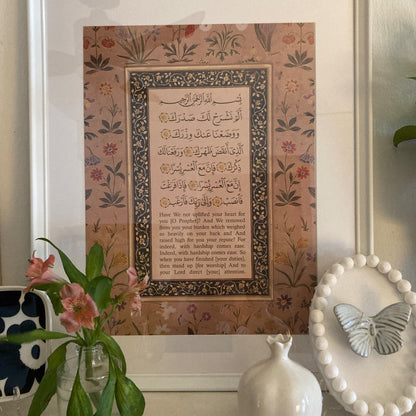 بِسْمِ اللَّهِ الرَّحْمَٰنِ الرَّحِيمِ
أَلَمْ نَشْرَحْ لَكَ صَدْرَكَ
وَوَضَعْنَا عَنكَ وِزْرَكَ
الَّذِي أَنقَضَ ظَهْرَكَ وَرَفَعْنَا لَكَ
ذِكْرَكَ فَإِنَّ مَعَ الْعُسْرِ يُسْرًا
إِنَّ مَعَ الْعُسْرِ يُسْرًا فَإِذَا فَرَغْتَ
فَانصَبْ وَإِلَىٰ رَبِّكَ فَارْغَب
Have We not uplifted your heart for
you [O Prophet]? And We removed
from you your burden which weighed
so heavily on your back and And
raised high for you your repute? For
indeed, with hardship comes ease.
Indeed, with hardship comes ease. So
when you have finished [your duties],
then stand up [for worship] And to
your Lord direct [your] attention